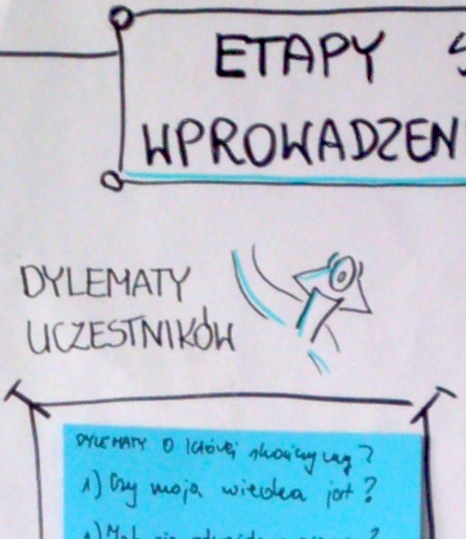 ETAPY
WPROWADZEN
DYLEMATY
UCZESTNIKÓW
DYLEMATY O KTÓREJ skończymy?
1) Czy moja wiedza jest?